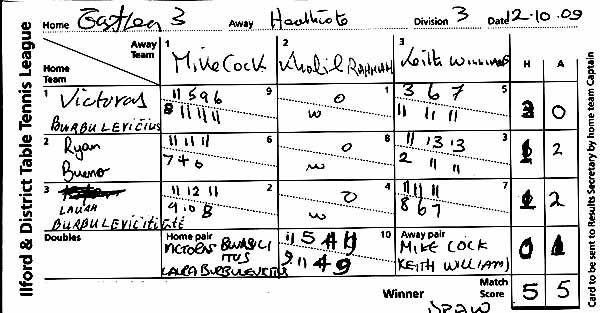 Home Eastern 3 Away Heathcote Division 3 Date 12-10.09
Ilford & District Table Tennis League
Card to be sent to Results Secretary by home team Captain
Away Team
Home Team
1 Mike Cock
2 Khalil Rahman
3 Keith Williams
H A
1 Victoras Burbulevicius
9
11 5 9 6
8 11 11 11
1
0
w
5
3 6 7
11 11 11
0
2 Ryan Bueno
6
11 11 11
7 4 6
8
0
w
3
11 13 13
2 11 11
2
3
Laura Burbulevicitite
2
11 12 11
9 10 8
4
0
w
7
11 11 11
8 6 7
2
Doubles
Home pair
Laura Burbulevicius
10
11 5
9 11
Away pair
Mike Cock
Keith Williams
Winner
Draw
Match Score 5 5